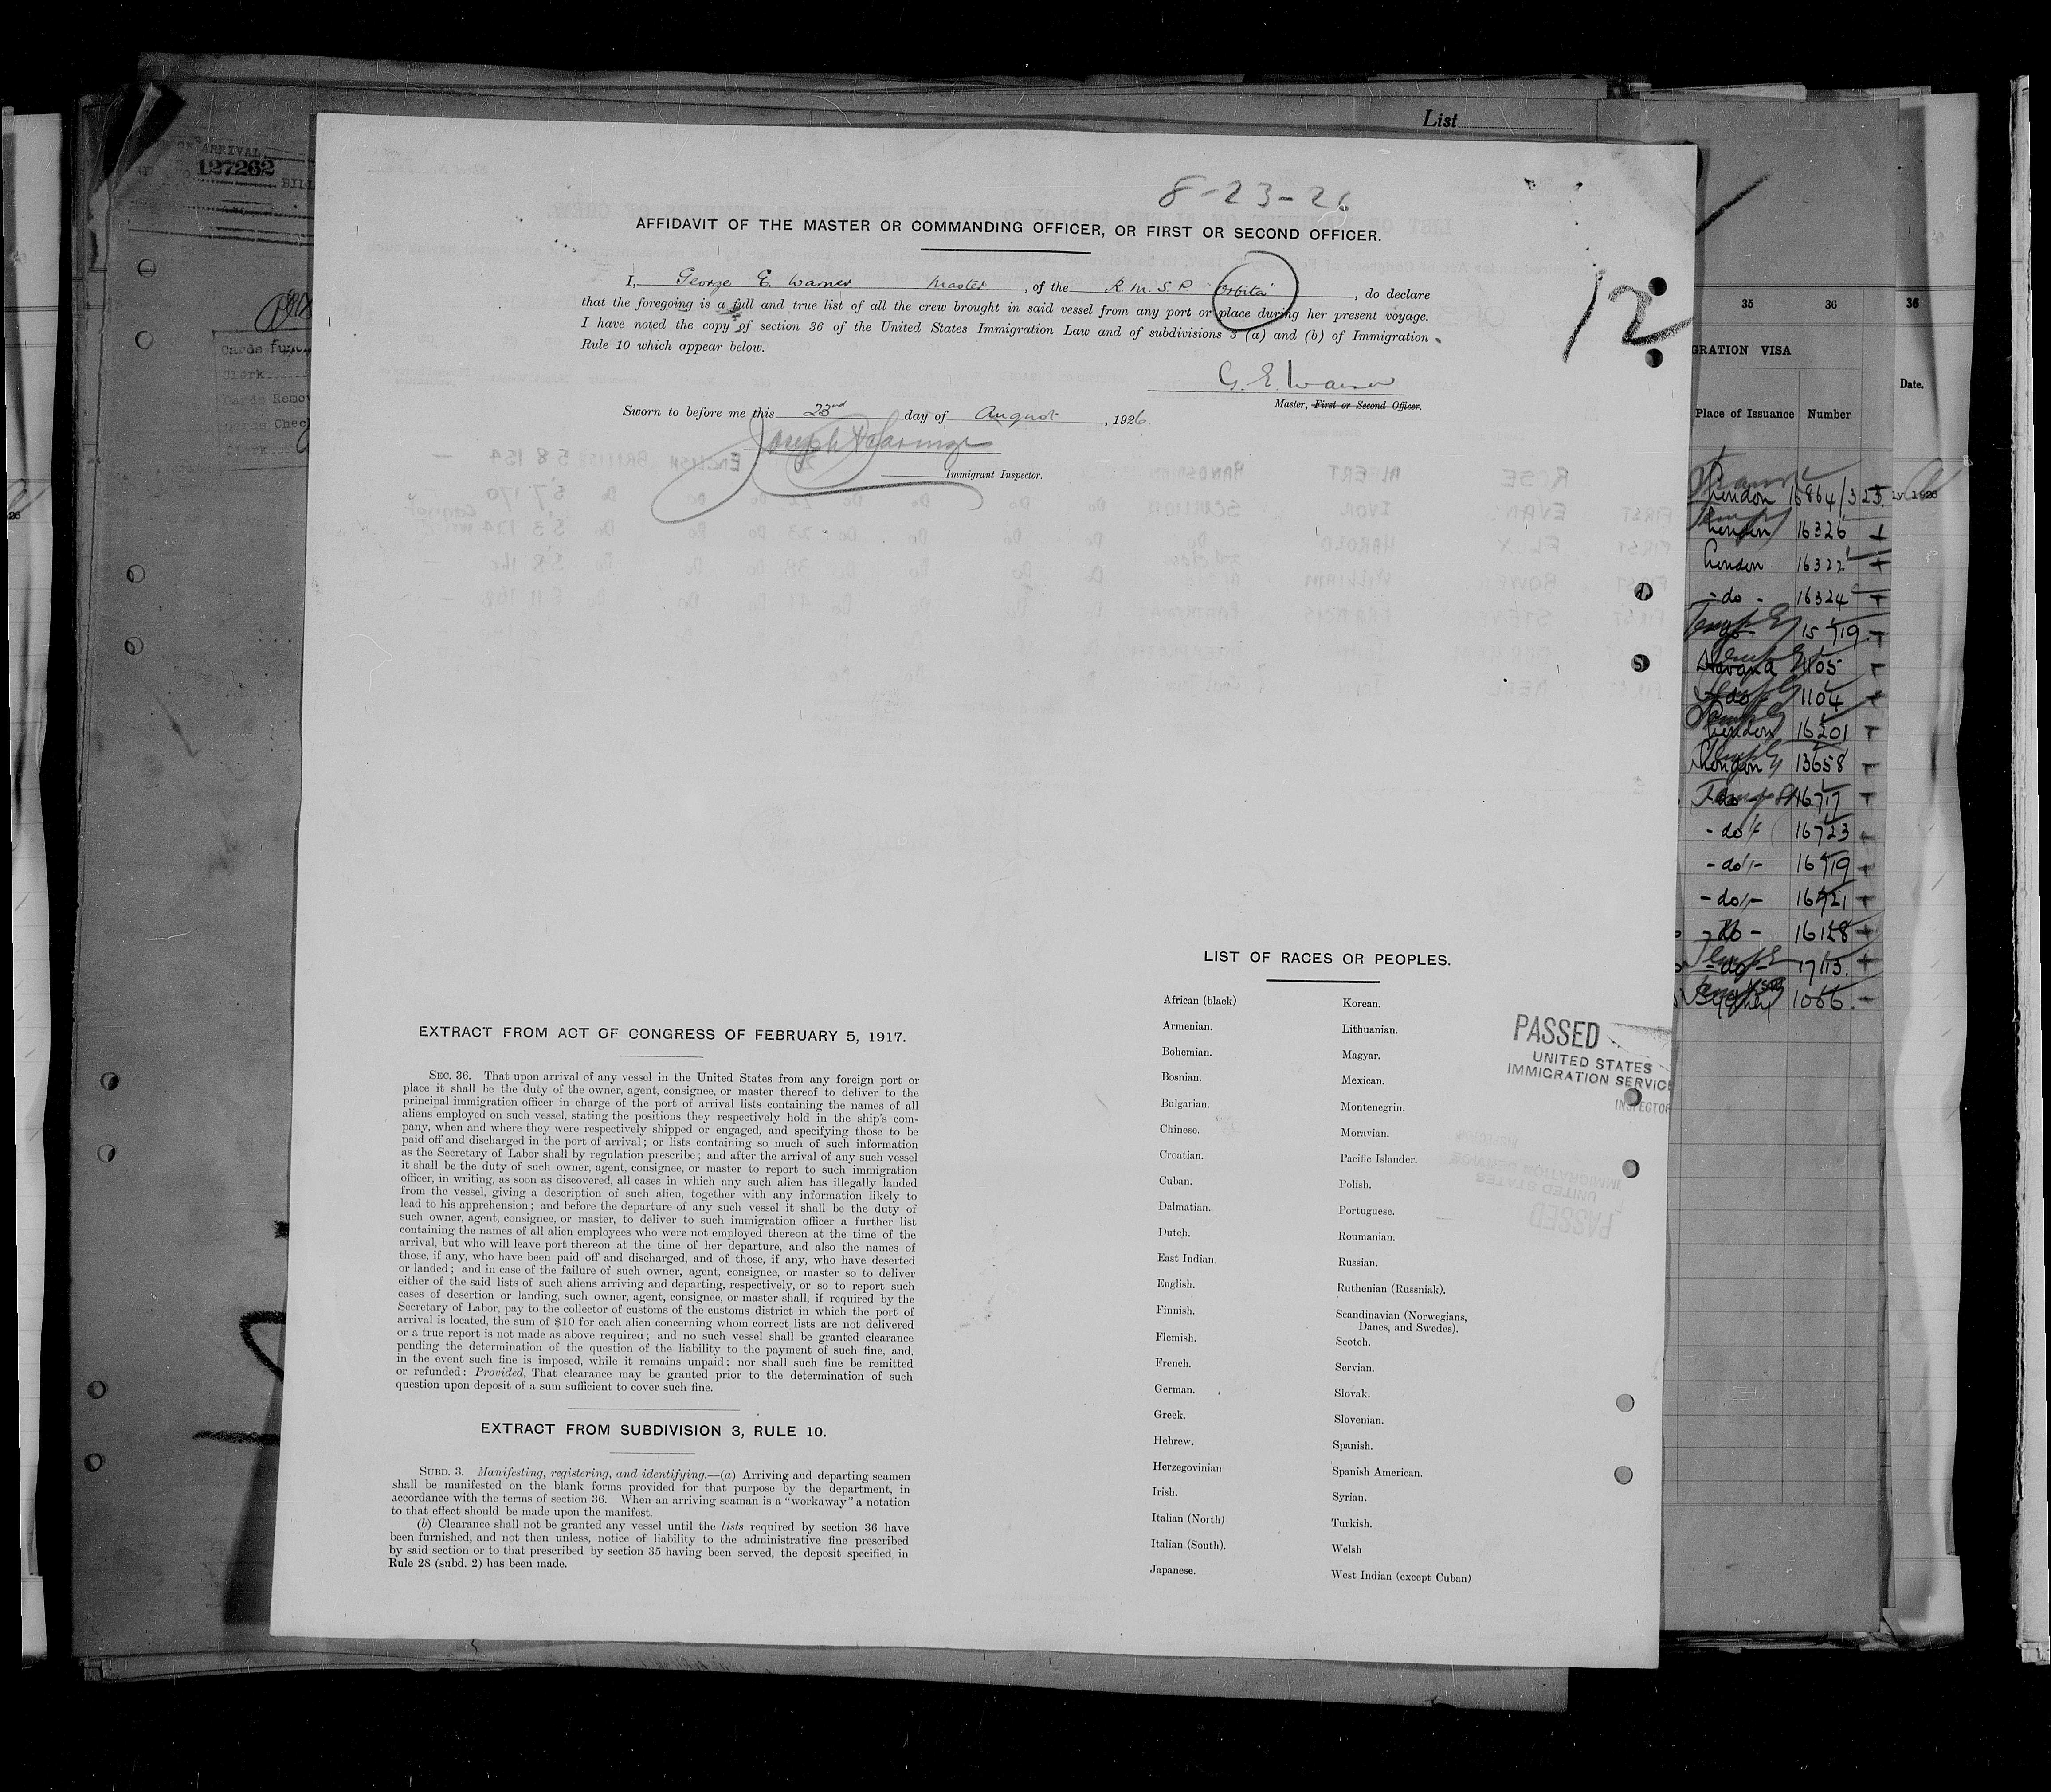 List
ARRIVAL
127262
8-23-26
AFFIDAVIT OF THE MASTER OR COMMANDING OFFICER, OR FIRST OR SECOND OFFICER.
I, George E. Warner Master, of the R.M.S.P. "Orbita", do declare
that the foregoing is a full and true list of all the crew brought in said vessel from any port or place during her present voyage.
I have noted the copy of section 36 of the United States Immigration Law and of subdivisions 3 (a) and (b) of Immigration
Rule 10 which appear below.
12
G. E. Warner
Master, First or Second Officer.
Sworn to before me this 23rd day of August, 1926
Immigrant Inspector.
LIST OF RACES OR PEOPLES.
African (black)
Armenian.
Bohemian.
Bosnian.
Bulgarian.
Chinese.
Croatian.
Cuban.
Dalmatian.
Dutch.
East Indian
English.
Finnish.
Flemish.
French.
German.
Greek.
Hebrew.
Herzegovinian
Irish.
Italian (North)
Italian (South).
Japanese.
Korean.
Lithuanian.
Magyar.
Mexican.
Montenegrin.
Moravian.
Pacific Islander.
Polish.
Portuguese.
Roumanian.
Russian.
Ruthenian (Russniak).
Scandinavian (Norwegians,
Danes, and Swedes).
Scotch.
Servian.
Slovak.
Slovenian.
Spanish.
Spanish American.
Syrian.
Turkish.
Welsh
West Indian (except Cuban)
PASSED
UNITED STATES
IMMIGRATION SERVICE
INSPECTOR
EXTRACT FROM ACT OF CONGRESS OF FEBRUARY 5, 1917.
SEC. 36. That upon arrival of any vessel in the United States from any foreign port or
place it shall be the duty of the owner, agent, consignee, or master thereof to deliver to the
principal immigration officer in charge of the port of arrival lists containing the names of all
aliens employed on such vessel, stating the positions they respectively hold in the ship's com-
pany, when and where they were respectively shipped or engaged, and specifying those to be
paid off and discharged in the port of arrival; or lists containing so much of such information
as the Secretary of Labor shall by regulation prescribe; and after the arrival of any such vessel
it shall be the duty of such owner, agent, consignee, or master to report to such immigration
officer, in writing, as soon as discovered, all cases in which any such alien has illegally landed
from the vessel, giving a description of such alien, together with any information likely to
lead to his apprehension; and before the departure of any such vessel it shall be the duty of
such owner, agent, consignee, or master, to deliver to such immigration officer a further list
containing the names of all alien employees who were not employed thereon at the time of the
arrival, but who will leave port thereon at the time of her departure, and also the names of
those, if any, who have been paid off and discharged, and of those, if any, who have deserted
or landed; and in case of the failure of such owner, agent, consignee, or master so to deliver
either of the said lists of such aliens arriving and departing, respectively, or so to report such
cases of desertion or landing, such owner, agent, consignee, or master shall, if required by the
Secretary of Labor, pay to the collector of customs of the customs district in which the port of
arrival is located, the sum of $10 for each alien concerning whom correct lists are not delivered
or a true report is not made as above required; and no such vessel shall be granted clearance
pending the determination of the question of the liability to the payment of such fine, and,
in the event such fine is imposed, while it remains unpaid; nor shall such fine be remitted
or refunded: Provided, That clearance may be granted prior to the determination of such
question upon deposit of a sum sufficient to cover such fine.
EXTRACT FROM SUBDIVISION 3, RULE 10.
SUBD. 3. Manifesting, registering, and identifying.—(a) Arriving and departing seamen
shall be manifested on the blank forms provided for that purpose by the department, in
accordance with the terms of section 36. When an arriving seaman is a "workaway" a notation
to that effect should be made upon the manifest.
(b) Clearance shall not be granted any vessel until the lists required by section 36 have
been furnished, and not then unless, notice of liability to the administrative fine prescribed
by said section or to that prescribed by section 35 having been served, the deposit specified in
Rule 28 (subd. 2) has been made.
35 36
GRATION VISA
Place of Issuance Number
London 16864/325
London 16326
London 16322
- do - 16324
15719
1105
do 1104
London 16201
London 13658
16717
- do - 16723
- do - 16719
- do - 16721
16128
- do - 1713
Sydney 1066
36
Date.